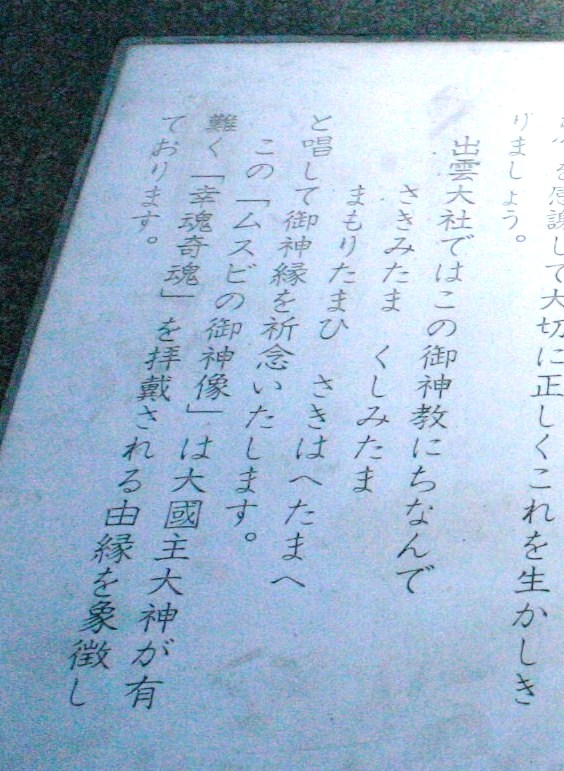 を感謝して大切に正しくこれを生かしき
りましょう。
出雲大社ではこの御神教にちなんで
さきみたま　くしみたま
まもりたまひ　さきはへたまへ
と唱して御神縁を祈念いたします。
この「ムスビの御神像」は大國主大神が有
難く「幸魂奇魂」を拝戴される由縁を象徴し
ております。